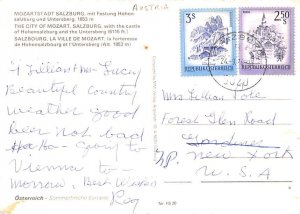 AUSTRIA
MOZARTSTADT SALZBURG, mit Festung Hohensalzburg und Untersberg, 1853 m
THE CITY OF MOZART, SALZBURG, with the castle of Hohensalzburg and the Untersberg (6116 ft.)
SALZBOURG, LA VILLE DE MOZART, la forteresse de Hohensalzburg et l'Untersberg (Alt. 1853 m)
3 S
REPUBLIK ÖSTERREICH
2,50
REPUBLIK ÖSTERREICH
Lillian
Beautiful Country
weather good
Beer not bad
Ha Ha - going to
Vienna to
morrow, Best Wishes
Reg
Miss Lillian
Forest Glen Road
Gardiner
N.Y. New York
U.S.A
Österreich - Sommerfrische Europas